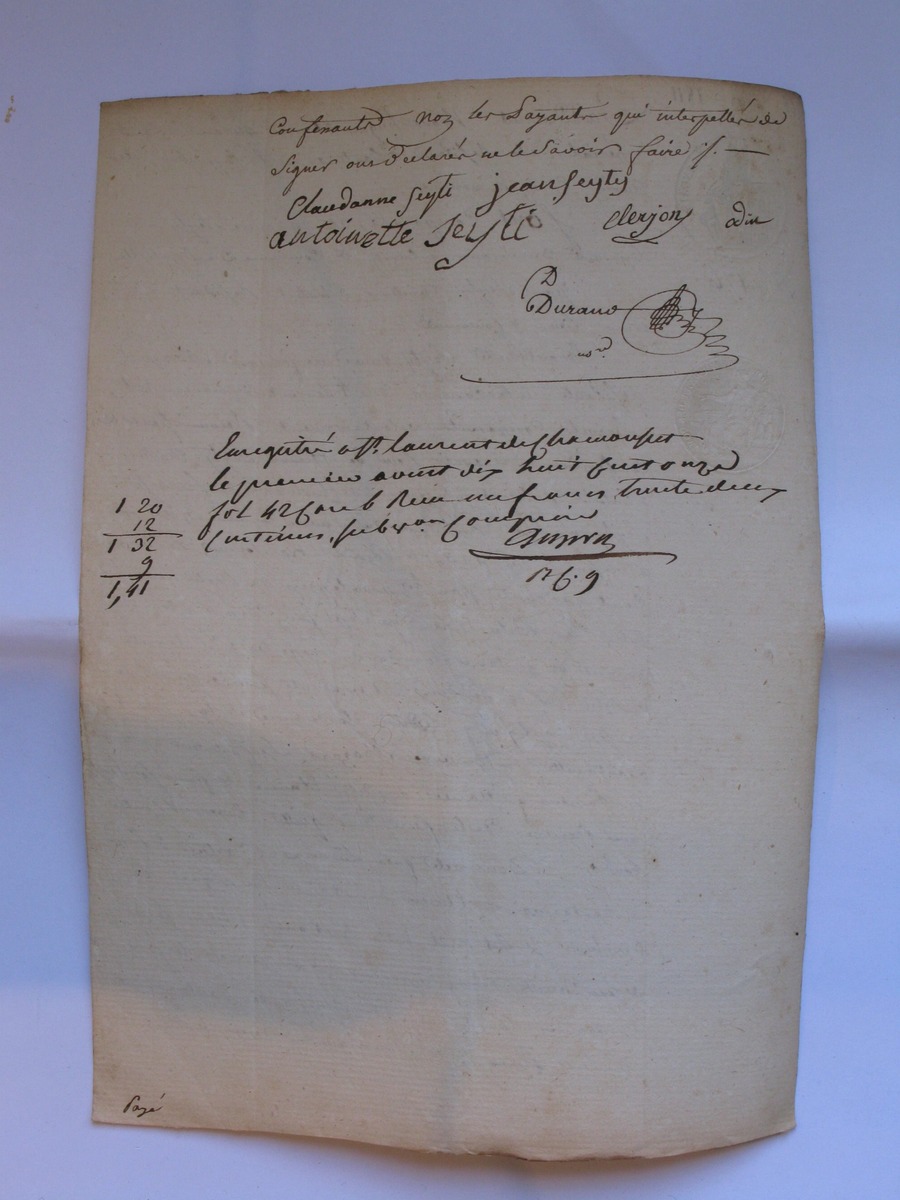 Confenants Non les Payants qui interpellés de
Signer ons declarés ne le Savoir faire ·/. —
Claudanne Seyti jean Seyty
antoinette Seyti Clerjon
D
Durand
nore
Enregistré a St. laurent de Chamousset
le premier aoust dix huit Cent onze
fol 42 Case 6 Recu un franc trente deux
Centimes, Subvon Comprise
1 20
12
1 32
9
1,41
Payé